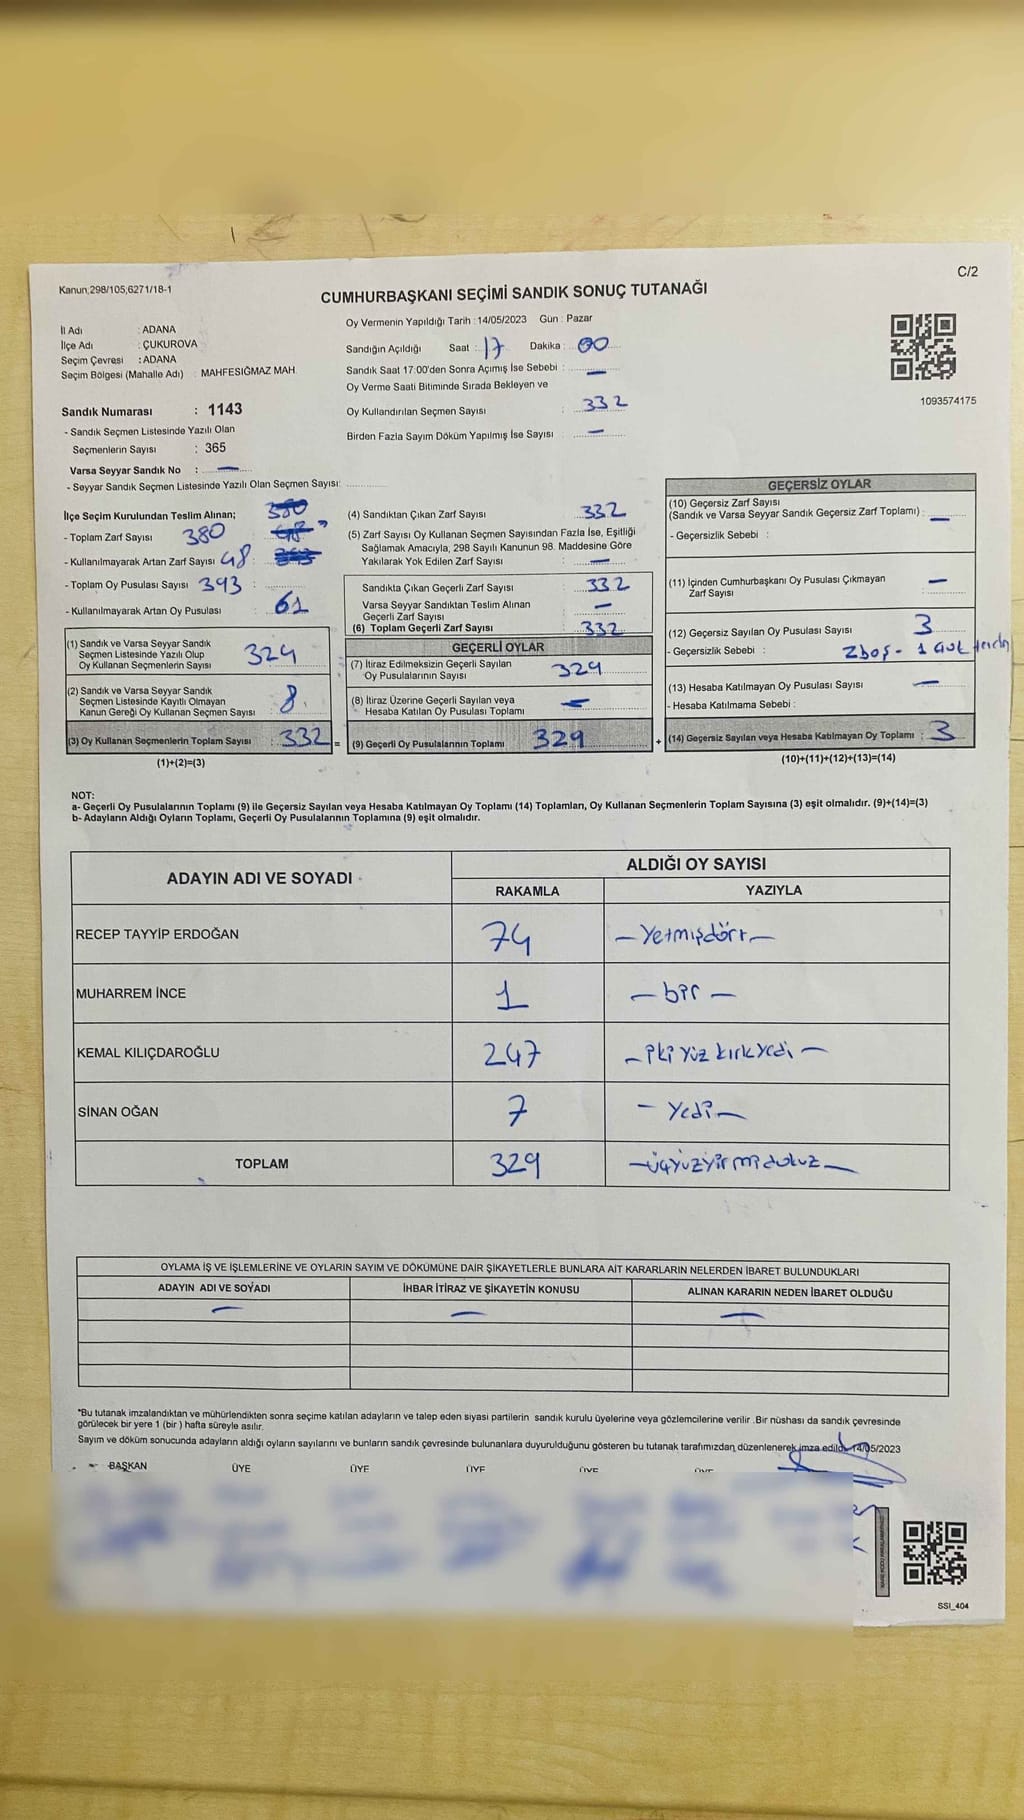 Kanun;298/105;6271/18-1
C/2
CUMHURBAŞKANI SEÇİMİ SANDIK SONUÇ TUTANAĞI
İl Adı : ADANA
İlçe Adı : ÇUKUROVA
Seçim Çevresi : ADANA
Seçim Bölgesi (Mahalle Adı) : MAHFESIĞMAZ MAH.
Sandık Numarası : 1143
- Sandık Seçmen Listesinde Yazılı Olan
Seçmenlerin Sayısı : 365
Varsa Seyyar Sandık No : —
- Seyyar Sandık Seçmen Listesinde Yazılı Olan Seçmen Sayısı:
Oy Vermenin Yapıldığı Tarih : 14/05/2023 Gün : Pazar
Sandığın Açıldığı Saat : 17 Dakika : 00
Sandık Saat 17:00'den Sonra Açımış İse Sebebi : —
Oy Verme Saati Bitiminde Sırada Bekleyen ve
Oy Kullandırılan Seçmen Sayısı : 332
Birden Fazla Sayım Döküm Yapılmış İse Sayısı : —
1093574175
İlçe Seçim Kurulundan Teslim Alınan;
- Toplam Zarf Sayısı 380
- Kullanılmayarak Artan Zarf Sayısı 48
- Toplam Oy Pusulası Sayısı 393 :
- Kullanılmayarak Artan Oy Pusulası : 61
(1) Sandık ve Varsa Seyyar Sandık
Seçmen Listesinde Yazılı Olup
Oy Kullanan Seçmenlerin Sayısı 324
(2) Sandık ve Varsa Seyyar Sandık
Seçmen Listesinde Kayıtlı Olmayan
Kanun Gereği Oy Kullanan Seçmen Sayısı : 8
(3) Oy Kullanan Seçmenlerin Toplam Sayısı : 332 =
(1)+(2)=(3)
(4) Sandıktan Çıkan Zarf Sayısı : 332
(5) Zarf Sayısı Oy Kullanan Seçmen Sayısından Fazla İse, Eşitliği
Sağlamak Amacıyla, 298 Sayılı Kanunun 98. Maddesine Göre
Yakılarak Yok Edilen Zarf Sayısı : —
Sandıkta Çıkan Geçerli Zarf Sayısı : 332
Varsa Seyyar Sandıktan Teslim Alınan
Geçerli Zarf Sayısı : —
(6) Toplam Geçerli Zarf Sayısı : 332
GEÇERLİ OYLAR
(7) İtiraz Edilmeksizin Geçerli Sayılan
Oy Pusulalarının Sayısı : 329
(8) İtiraz Üzerine Geçerli Sayılan veya
Hesaba Katılan Oy Pusulası Toplamı : —
(9) Geçerli Oy Pusulalarının Toplamı : 329 +
GEÇERSİZ OYLAR
(10) Geçersiz Zarf Sayısı
(Sandık ve Varsa Seyyar Sandık Geçersiz Zarf Toplamı) : —
- Geçersizlik Sebebi :
(11) İçinden Cumhurbaşkanı Oy Pusulası Çıkmayan
Zarf Sayısı : —
(12) Geçersiz Sayılan Oy Pusulası Sayısı : 3
- Geçersizlik Sebebi : 2 boş - 1
(13) Hesaba Katılmayan Oy Pusulası Sayısı : —
- Hesaba Katılmama Sebebi :
(14) Geçersiz Sayılan veya Hesaba Katılmayan Oy Toplamı : 3
(10)+(11)+(12)+(13)=(14)
NOT:
a- Geçerli Oy Pusulalarının Toplamı (9) ile Geçersiz Sayılan veya Hesaba Katılmayan Oy Toplamı (14) Toplamları, Oy Kullanan Seçmenlerin Toplam Sayısına (3) eşit olmalıdır. (9)+(14)=(3)
b- Adayların Aldığı Oyların Toplamı, Geçerli Oy Pusulalarının Toplamına (9) eşit olmalıdır.
ADAYIN ADI VE SOYADI
ALDIĞI OY SAYISI
RAKAMLA YAZIYLA
RECEP TAYYİP ERDOĞAN 74 — Yetmişdört —
MUHARREM İNCE 1 — bir —
KEMAL KILIÇDAROĞLU 247 — iki yüz kırkyedi —
SİNAN OĞAN 7 — Yedi —
TOPLAM 329 — üçyüzyirmidokuz —
OYLAMA İŞ VE İŞLEMLERİNE VE OYLARIN SAYIM VE DÖKÜMÜNE DAİR ŞİKAYETLERLE BUNLARA AİT KARARLARIN NELERDEN İBARET BULUNDUKLARI
ADAYIN ADI VE SOYADI İHBAR İTİRAZ VE ŞİKAYETİN KONUSU ALINAN KARARIN NEDEN İBARET OLDUĞU
— — —
*Bu tutanak imzalandıktan ve mühürlendikten sonra seçime katılan adayların ve talep eden siyasi partilerin sandık kurulu üyelerine veya gözlemcilerine verilir .Bir nüshası da sandık çevresinde
görülecek bir yere 1 (bir ) hafta süreyle asılır.
Sayım ve döküm sonucunda adayların aldığı oyların sayılarını ve bunların sandık çevresinde bulunanlara duyurulduğunu gösteren bu tutanak tarafımızdan düzenlenerek imza edildi. 14/05/2023
BAŞKAN ÜYE ÜYE ÜYE ÜYE ÜYE
SSI_404